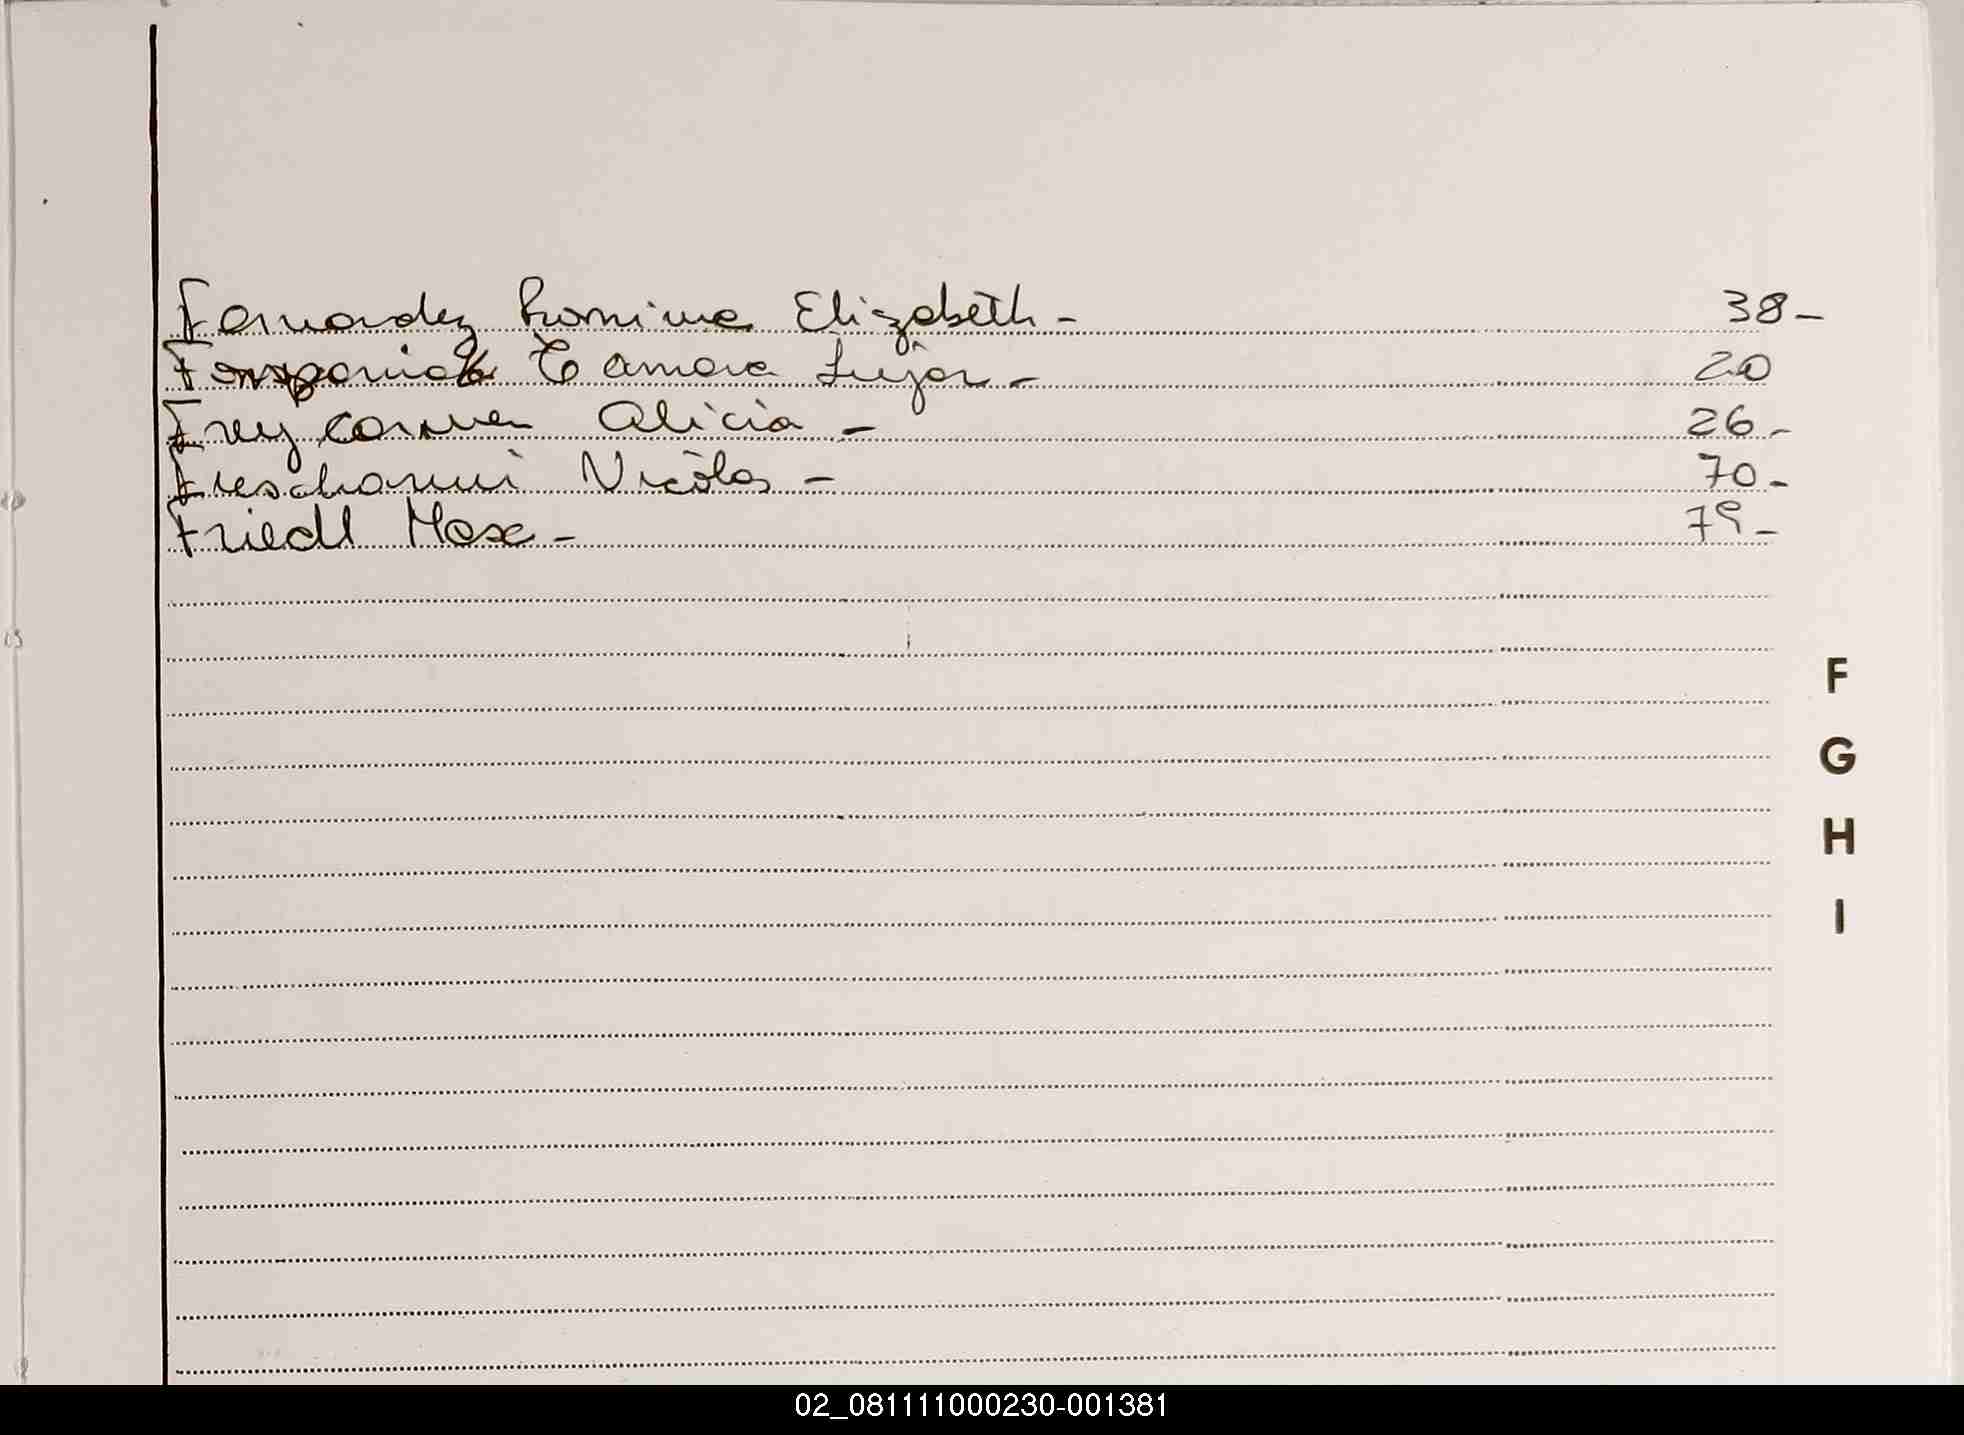 Fernandez Romina Elizabeth - 38-
Tamara Lujan - 20
Frey Carmen Alicia - 26-
Nicolas - 70-
Friedl Max - 79-
F
G
H
I
02_081111000230-001381